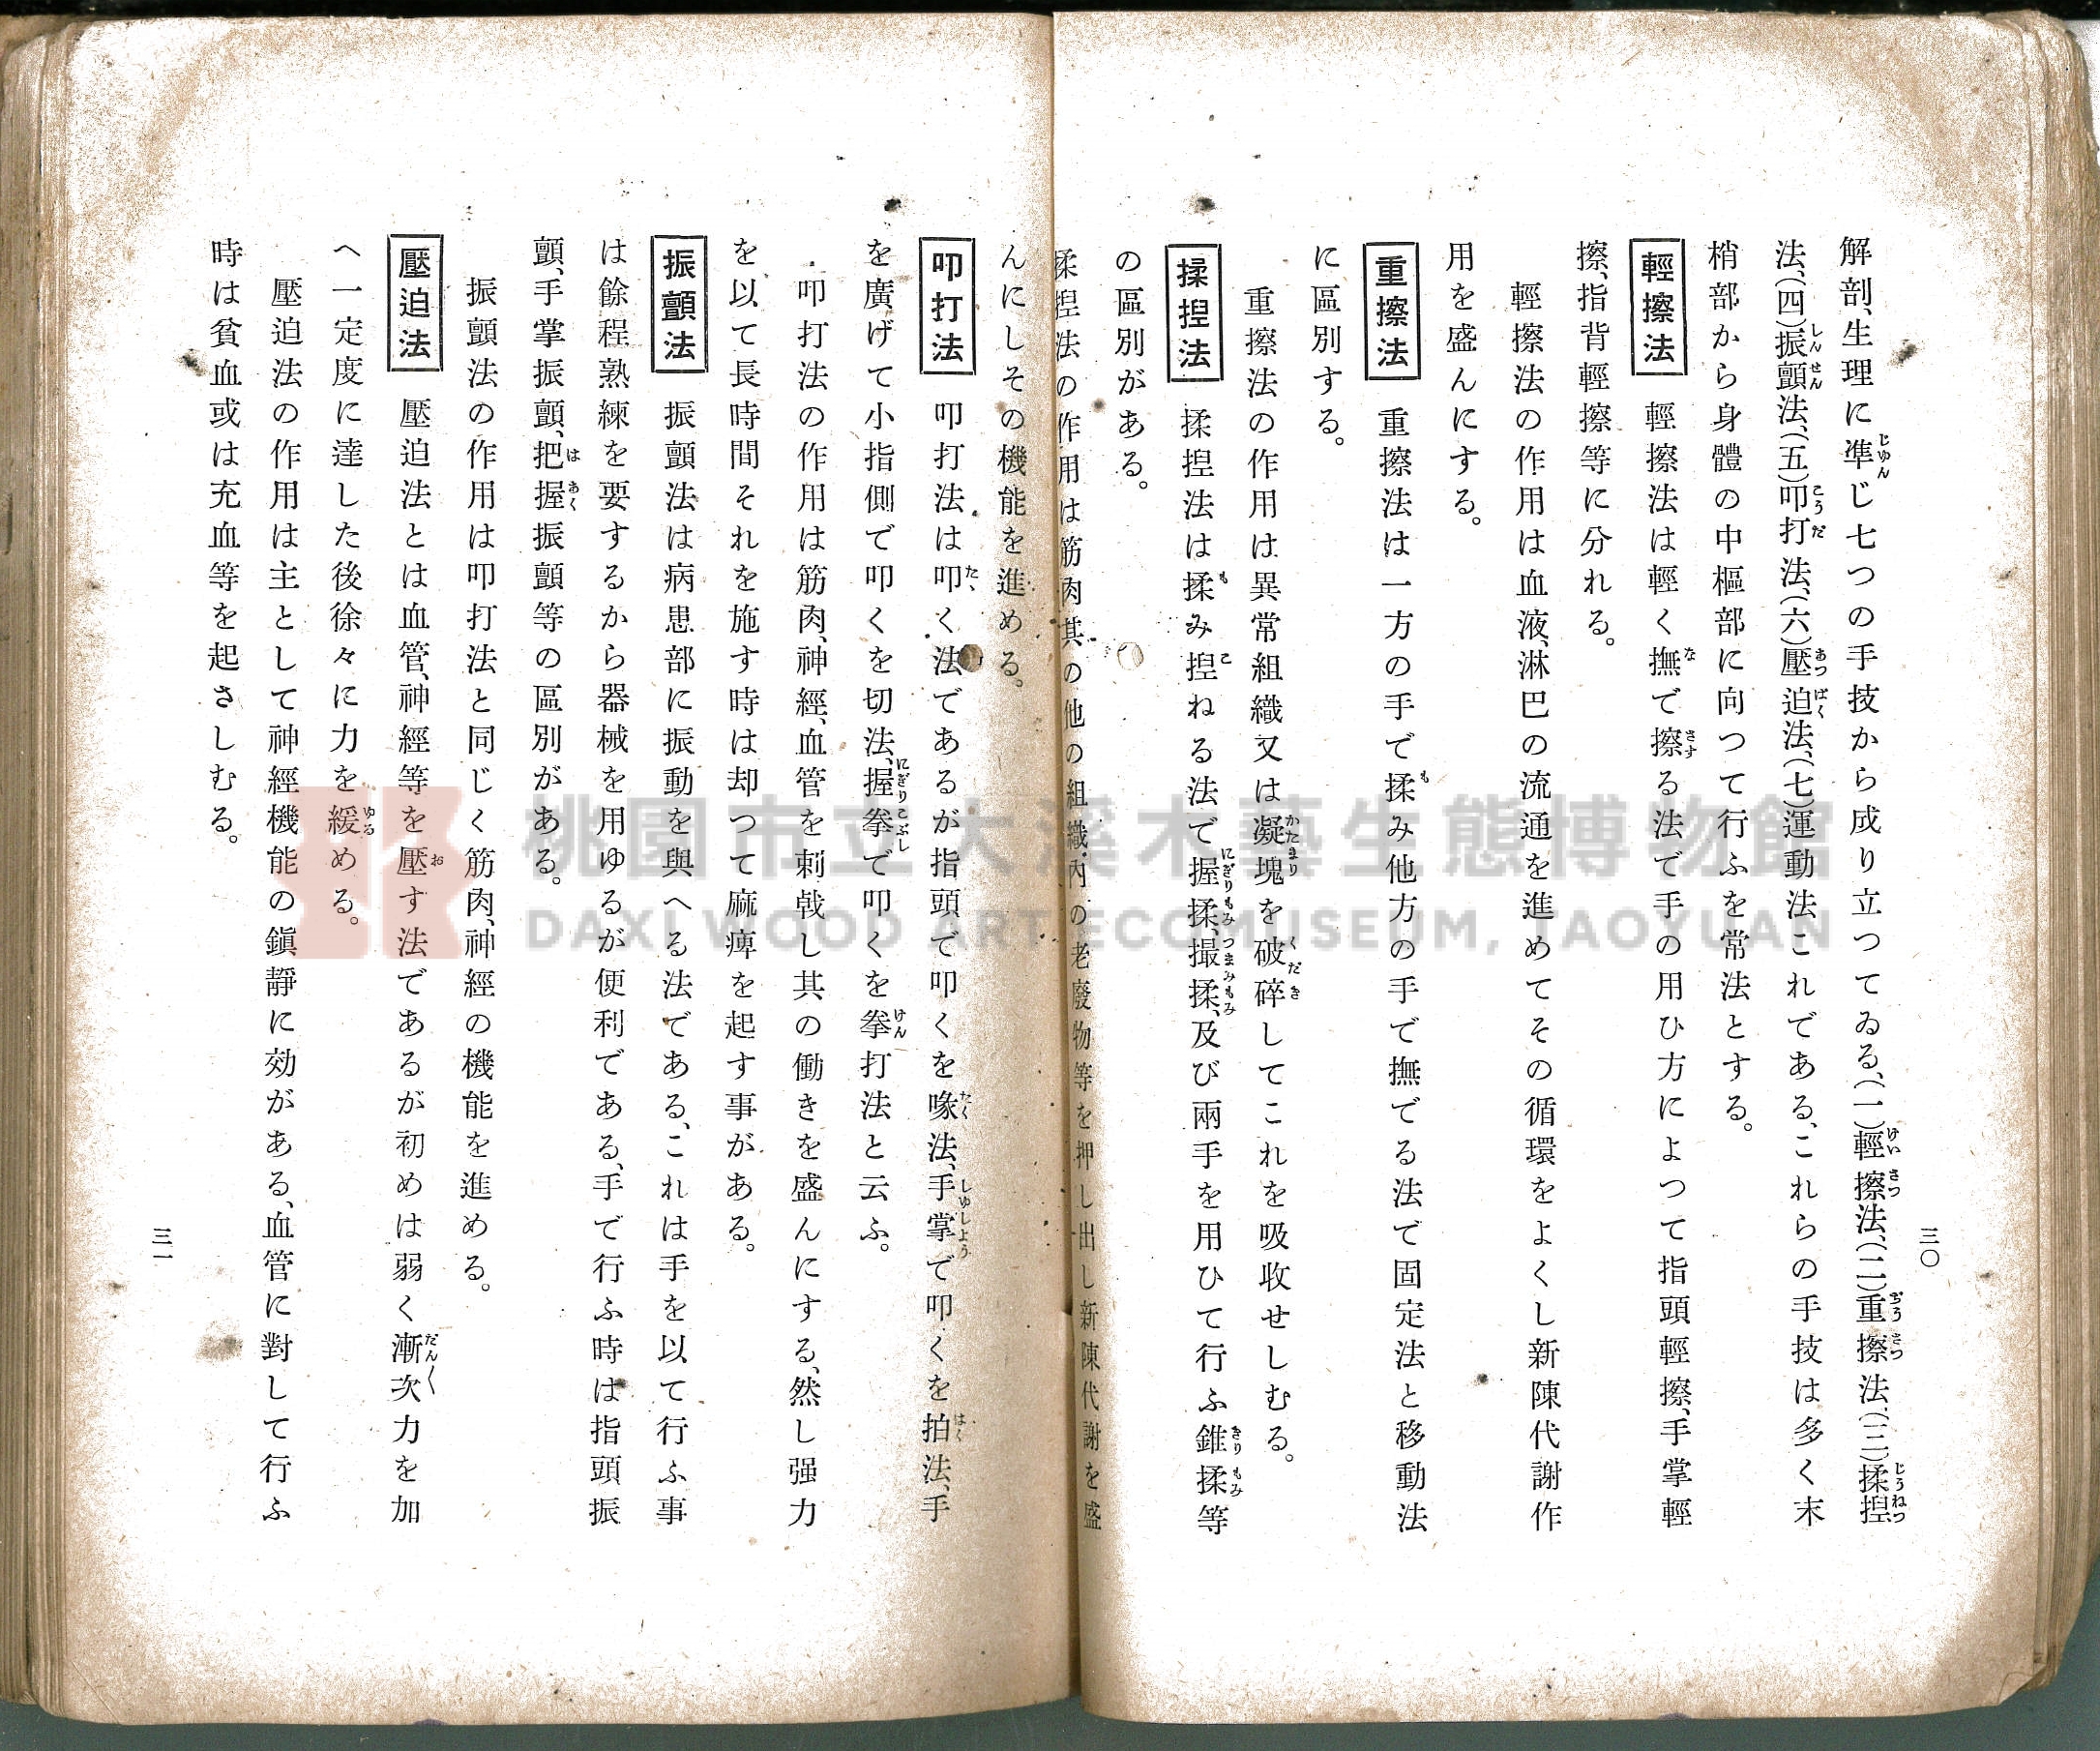 三〇
解剖、生理に準じ七つの手技から成り立つてゐる、(一)輕擦法、(二)重擦法、(三)揉揑
法、(四)振顫法、(五)叩打法、(六)壓迫法、(七)運動法これである、これらの手技は多く末
梢部から身體の中樞部に向つて行ふを常法とする。
輕擦法 輕擦法は輕く撫で擦る法で手の用ひ方によつて指頭輕擦、手掌輕
擦、指背輕擦等に分れる。
輕擦法の作用は血液、淋巴の流通を進めてその循環をよくし新陳代謝作
用を盛んにする。
重擦法 重擦法は一方の手で揉み他方の手で撫でる法で固定法と移動法
に區別する。
重擦法の作用は異常組織又は凝塊を破碎してこれを吸收せしむる。
揉揑法 揉揑法は揉み揑ねる法で握揉、撮揉、及び兩手を用ひて行ふ錐揉等
の區別がある。
揉揑法の作用は筋肉其の他の組織內の老廢物等を押し出し新陳代謝を盛
んにしその機能を進める。
叩打法 叩打法は叩く法であるが指頭で叩くを喙法、手掌で叩くを拍法、手
を廣げて小指側で叩くを切法、握拳で叩くを拳打法と云ふ。
叩打法の作用は筋肉、神經、血管を刺戟し其の働きを盛んにする、然し强力
を以て長時間それを施す時は却つて麻痺を起す事がある。
振顫法 振顫法は病患部に振動を與へる法である、これは手を以て行ふ事
は餘程熟練を要するから器械を用ゆるが便利である、手で行ふ時は指頭振
顫、手掌振顫、把握振顫等の區別がある。
振顫法の作用は叩打法と同じく筋肉、神經の機能を進める。
壓迫法 壓迫法とは血管、神經等を壓す法であるが初めは弱く漸次力を加
へ一定度に達した後徐々に力を緩める。
壓迫法の作用は主として神經機能の鎭靜に効がある、血管に對して行ふ
時は貧血或は充血等を起さしむる。
三一
桃園市立大溪木藝生態博物館
DAXI WOOD ART ECOMUSEUM, TAOYUAN